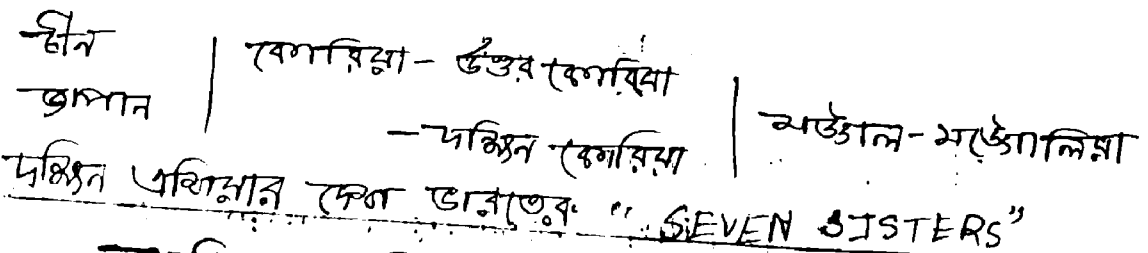 চীন
জাপান
কোরিয়া - উত্তর কোরিয়া
- দক্ষিন কোরিয়া
মঙ্গোল - মঙ্গোলিয়া
দক্ষিন এশিয়ার দেশ ভারতের "SEVEN SISTERS"